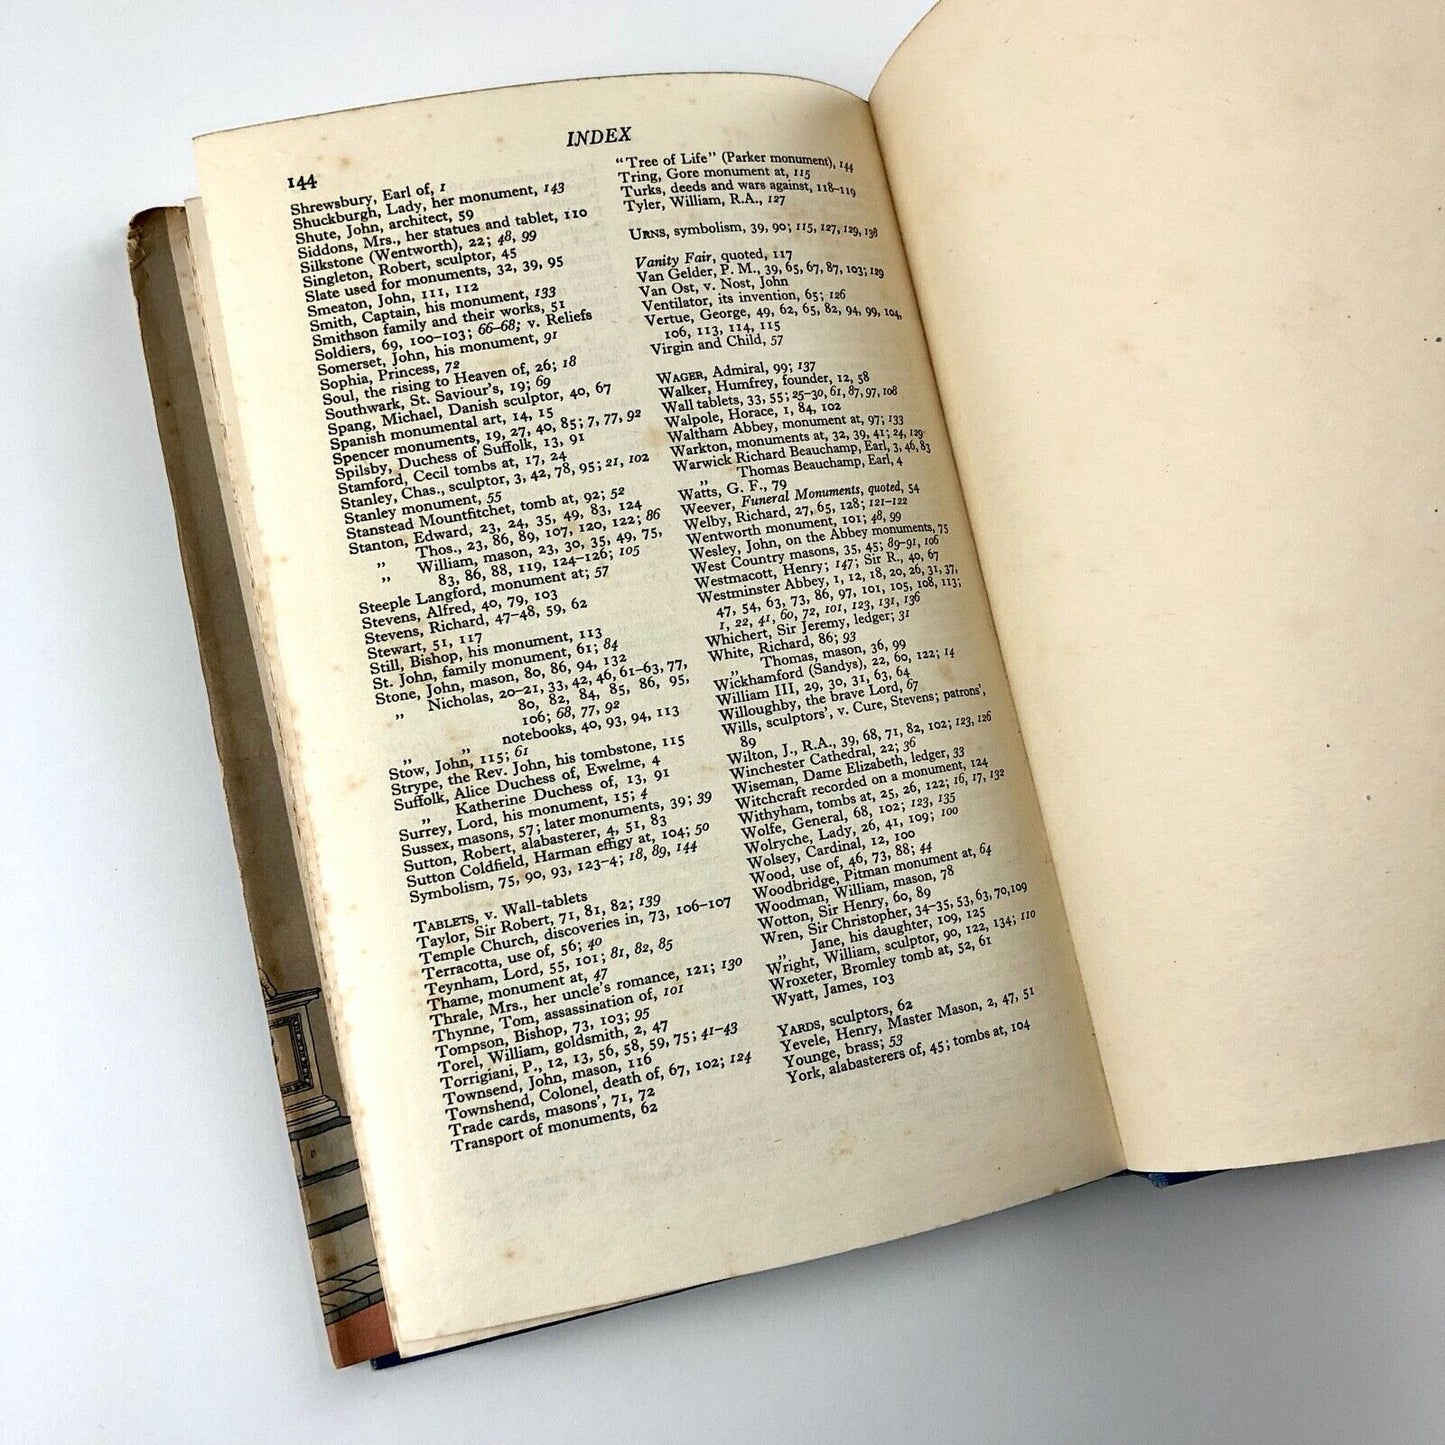 144
INDEX
Shrewsbury, Earl of, 1
Shuckburgh, Lady, her monument, 143
Shute, John, architect, 59
Siddons, Mrs., her statues and tablet, 110
Silkstone (Wentworth), 22; 48, 99
Singleton, Robert, sculptor, 45
Slate used for monuments, 32, 39, 95
Smeaton, John, 111, 112
Smith, Captain, his monument, 133
Smithson family and their works, 51
Soldiers, 69, 100–103; 66–68; v. Reliefs
Somerset, John, his monument, 91
Sophia, Princess, 72
Soul, the rising to Heaven of, 26; 18
Southwark, St. Saviour's, 19; 69
Spang, Michael, Danish sculptor, 40, 67
Spanish monumental art, 14, 15
Spencer monuments, 19, 27, 40, 85; 7, 77, 92
Spilsby, Duchess of Suffolk, 13, 91
Stamford, Cecil tombs at, 17, 24
Stanley, Chas., sculptor, 3, 42, 78, 95; 21, 102
Stanley monument, 55
Stanstead Mountfitchet, tomb at, 92; 52
Stanton, Edward, 23, 24, 35, 49, 83, 124
„ Thos., 23, 86, 89, 107, 120, 122; 86
„ William, mason, 23, 30, 35, 49, 75,
83, 86, 88, 119, 124–126; 105
Steeple Langford, monument at; 57
Stevens, Alfred, 40, 79, 103
Stevens, Richard, 47–48, 59, 62
Stewart, 51, 117
Still, Bishop, his monument, 113
St. John, family monument, 61; 84
Stone, John, mason, 80, 86, 94, 132
„ Nicholas, 20–21, 33, 42, 46, 61–63, 77,
80, 82, 84, 85, 86, 95,
106; 68, 77, 92
„ „ notebooks, 40, 93, 94, 113
Stow, John, 115; 61
Strype, the Rev. John, his tombstone, 115
Suffolk, Alice Duchess of, Ewelme, 4
„ Katherine Duchess of, 13, 91
Surrey, Lord, his monument, 15; 4
Sussex, masons, 57; later monuments, 39; 39
Sutton, Robert, alabasterer, 4, 51, 83
Sutton Coldfield, Harman effigy at, 104; 50
Symbolism, 75, 90, 93, 123–4; 18, 89, 144
TABLETS, v. Wall-tablets
Taylor, Sir Robert, 71, 81, 82; 139
Temple Church, discoveries in, 73, 106–107
Terracotta, use of, 56; 40
Teynham, Lord, 55, 101; 81, 82, 85
Thame, monument at, 47
Thrale, Mrs., her uncle's romance, 121; 130
Thynne, Tom, assassination of, 101
Tompson, Bishop, 73, 103; 95
Torel, William, goldsmith, 2, 47
Torrigiani, P., 12, 13, 56, 58, 59, 75; 41–43
Townsend, John, mason, 116
Townshend, Colonel, death of, 67, 102; 124
Trade cards, masons', 71, 72
Transport of monuments, 62
"Tree of Life" (Parker monument), 144
Tring, Gore monument at, 115
Turks, deeds and wars against, 118–119
Tyler, William, R.A., 127
URNS, symbolism, 39, 90; 115, 127, 129, 138
Vanity Fair, quoted, 117
Van Gelder, P. M., 39, 65, 67, 87, 103; 129
Van Ost, v. Nost, John
Ventilator, its invention, 65; 126
Vertue, George, 49, 62, 65, 82, 94, 99, 104,
106, 113, 114, 115
Virgin and Child, 57
WAGER, Admiral, 99; 137
Walker, Humfrey, founder, 12, 58
Wall tablets, 33, 55; 25–30, 61, 87, 97, 108
Walpole, Horace, 1, 84, 102
Waltham Abbey, monument at, 97; 133
Warkton, monuments at, 32, 39, 41; 24, 129
Warwick Richard Beauchamp, Earl, 3, 46, 83
„ Thomas Beauchamp, Earl, 4
Watts, G. F., 79
Weever, Funeral Monuments, quoted, 54
Welby, Richard, 27, 65, 128; 121–122
Wentworth monument, 101; 48, 99
Wesley, John, on the Abbey monuments, 75
West Country masons, 35, 45; 89–91, 106
Westmacott, Henry; 147; Sir R., 40, 67
Westminster Abbey, 1, 12, 18, 20, 26, 31, 37,
47, 54, 63, 73, 86, 97, 101, 105, 108, 113;
1, 22, 41, 60, 72, 101, 123, 131, 136
Whichert, Sir Jeremy, ledger; 31
White, Richard, 86; 93
„ Thomas, mason, 36, 99
Wickhamford (Sandys), 22, 60, 122; 14
William III, 29, 30, 31, 63, 64
Willoughby, the brave Lord, 67
Wills, sculptors', v. Cure, Stevens; patrons',
89
Wilton, J., R.A., 39, 68, 71, 82, 102; 123, 126
Winchester Cathedral, 22; 36
Wiseman, Dame Elizabeth, ledger, 33
Witchcraft recorded on a monument, 124
Withyham, tombs at, 25, 26, 122; 16, 17, 132
Wolfe, General, 68, 102; 123, 135
Wolryche, Lady, 26, 41, 109; 100
Wolsey, Cardinal, 12, 100
Wood, use of, 46, 73, 88; 44
Woodbridge, Pitman monument at, 64
Woodman, William, mason, 78
Wotton, Sir Henry, 60, 89
Wren, Sir Christopher, 34–35, 53, 63, 70, 109
„ Jane, his daughter, 109, 125
Wright, William, sculptor, 90, 122, 134; 110
Wroxeter, Bromley tomb at, 52, 61
Wyatt, James, 103
YARDS, sculptors, 62
Yevele, Henry, Master Mason, 2, 47, 51
Younge, brass; 53
York, alabasterers of, 45; tombs at, 104